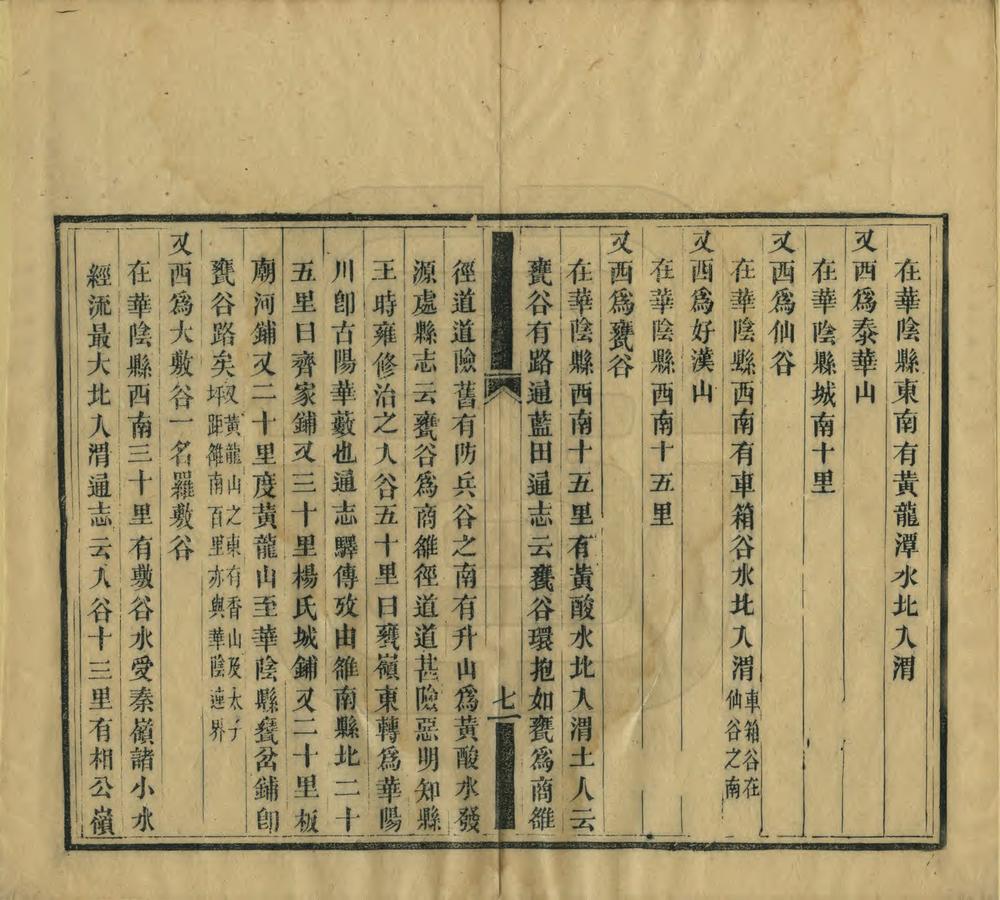 在華陰縣東南有黃龍潭水北入渭
又西爲泰華山
在華陰縣城南十里
又西爲仙谷
在華陰縣西南有車箱谷水北入渭車箱谷在仙谷之南
又西爲好漢山
在華陰縣西南十五里
又西爲甕谷
在華陰縣西南十五里有黃酸水北入渭土人云
甕谷有路通藍田通志云甕谷環抱如甕爲商雒
七
徑道道險舊有防兵谷之南有升山爲黃酸水發
源處縣志云甕谷爲商雒徑道道甚險惡明知縣
王時雍修治之入谷五十里曰甕嶺東轉爲華陽
川卽古陽華藪也通志驛傳攷由雒南縣北二十
五里曰齊家鋪又三十里楊氏城鋪又二十里板
廟河鋪又二十里度黃龍山至華陰縣甕岔鋪卽
甕谷路矣又黃龍山之東有香山及太子坪距雒南百里亦與華陰連界
又西爲大敷谷一名羅敷谷
在華陰縣西南三十里有敷谷水受秦嶺諸小水
經流最大北入渭通志云入谷十三里有相公嶺